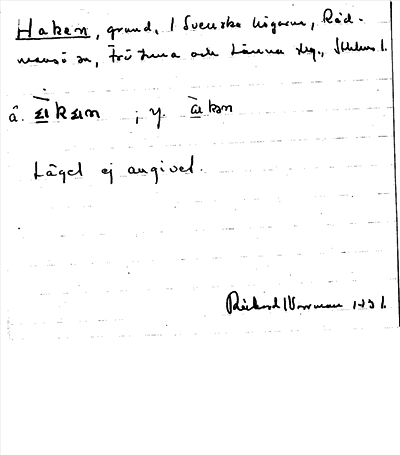 Haken, grund, i Svenska högarna, Råd-
mansö sn, Frötuna och Länna skg., Sthlms l.
å. ; y.
Läget ej angivet.
Rickard Norrman 1931.